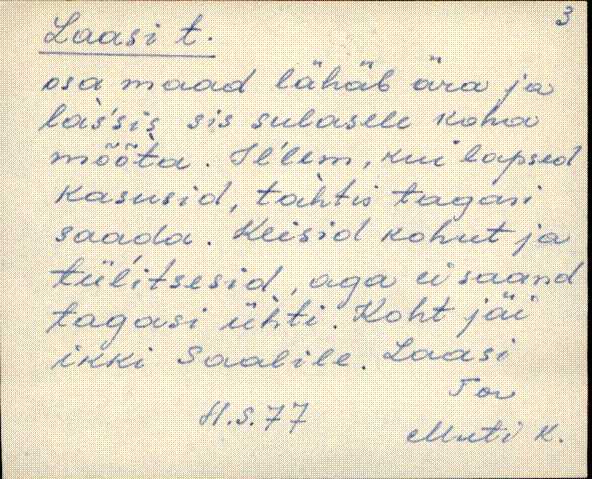 3
Laasi t.
osa maad lähäb ära ja
las'sis sis sulasele koha
mõõta. Il'lem, kui lapsed
kasusid, tahtis tagasi
saada. Keisid kohut ja
tül'itsesid, aga ei saand
tagasi ühti. Koht jäi
ikki Saalile. Laasi
Tor
H.S. 77
Muti K.